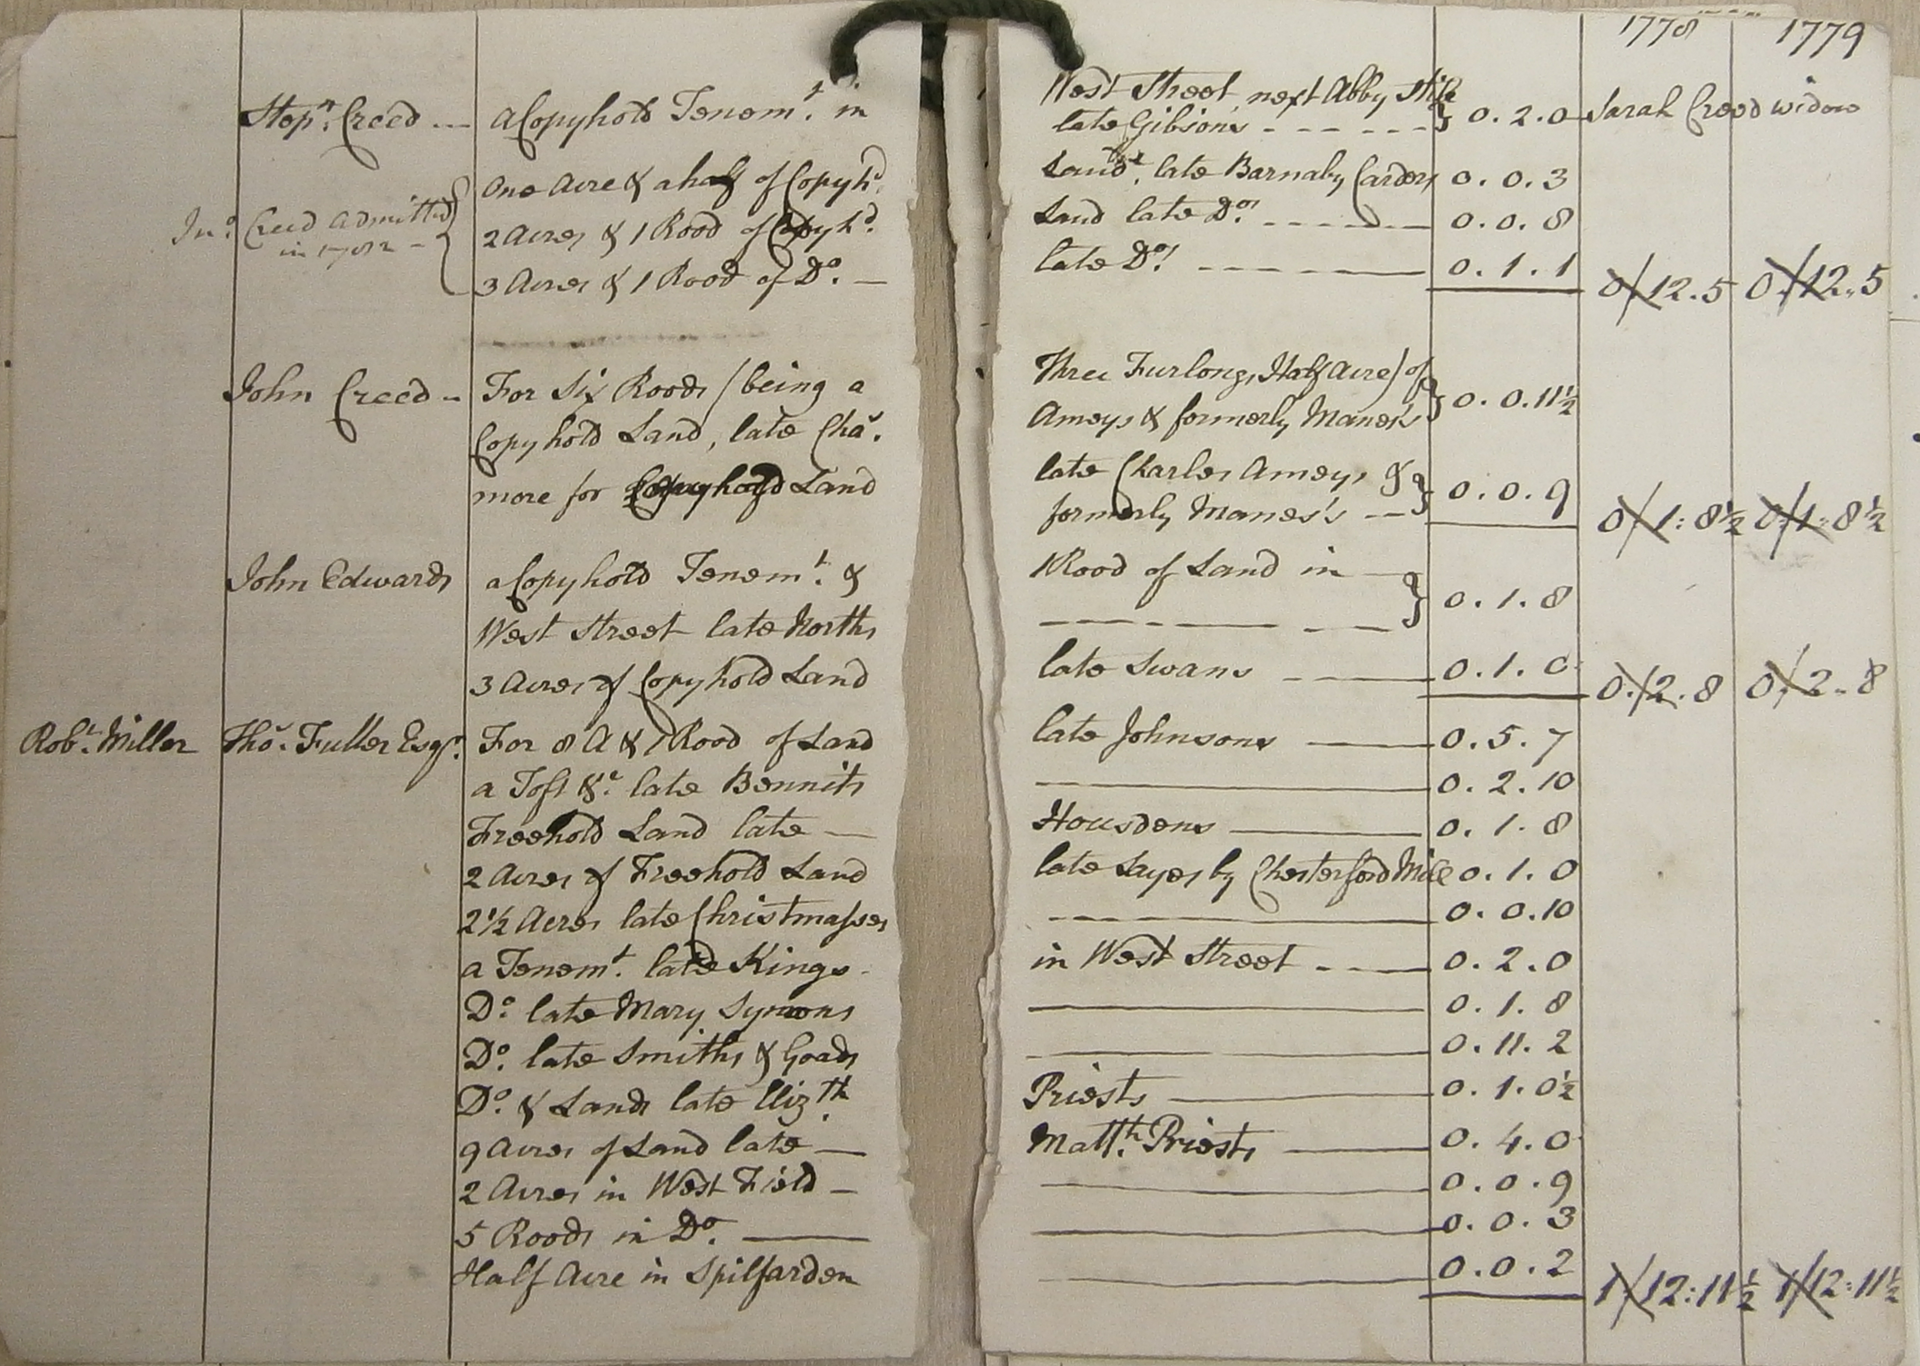 1778 1779
Stepn. Creed --- a Copyhold Tenemt. in West Street, next Abby Stile
late Gibsons - - - - - - } 0. 2. 0 Sarah Creed widow
One Acre & a half of Copyhd. Land, late Barnaby Carders 0. 0. 3
Jno. Creed admitted 2 Acres & 1 Rood of Copyhd. Land late Do. - - - - 0. 0. 8
in 1782 -
3 Acres & 1 Rood of Do. — late Do. - - - - 0. 1. 1
0/12.5 0/12..5
John Creed - For Six Roods (being a Three Furlongs, Half Acre) of
Copyhold Land, late Chas. Ameys & formerly Manes's } 0. 0. 11½
more for Copyhold Land late Charles Ameys &
formerly Manes's -- } 0. 0. 9
0/1:8½ 0/1:8½
John Edwards a Copyhold Tenemt. & 1 Rood of Land in —
West Street late Norths - - - - - - } 0. 1. 8
3 Acres of Copyhold Land late Swans - - - 0. 1. 0
0./2.8 0/2..8
Robt. Miller Thos. Fuller Esqr. For 8 A & 1 Rood of Land late Johnsons — 0. 5. 7
a Toft &c. late Bennits — 0. 2. 10
Freehold Land late — Housdens — 0. 1. 8
2 Acres of Freehold Land late Sayes by Chesterford Mill 0. 1. 0
2½ Acres late Christmasses — 0. 0. 10
a Tenemt. late Kings - in West Street - - - 0. 2. 0
Do. late Mary Symons — 0. 1. 8
Do. late Smiths & Goads — 0. 11. 2
Do. & Lands late Elizth. Priests — 0. 1. 0½
9 Acres of Land late — Matth. Priests — 0. 4. 0
2 Acres in West Field — 0. 0. 9
5 Roods in Do. — 0. 0. 3
Half Acre in Spilfarden — 0. 0. 2
1/12:11½ 1/12:11½